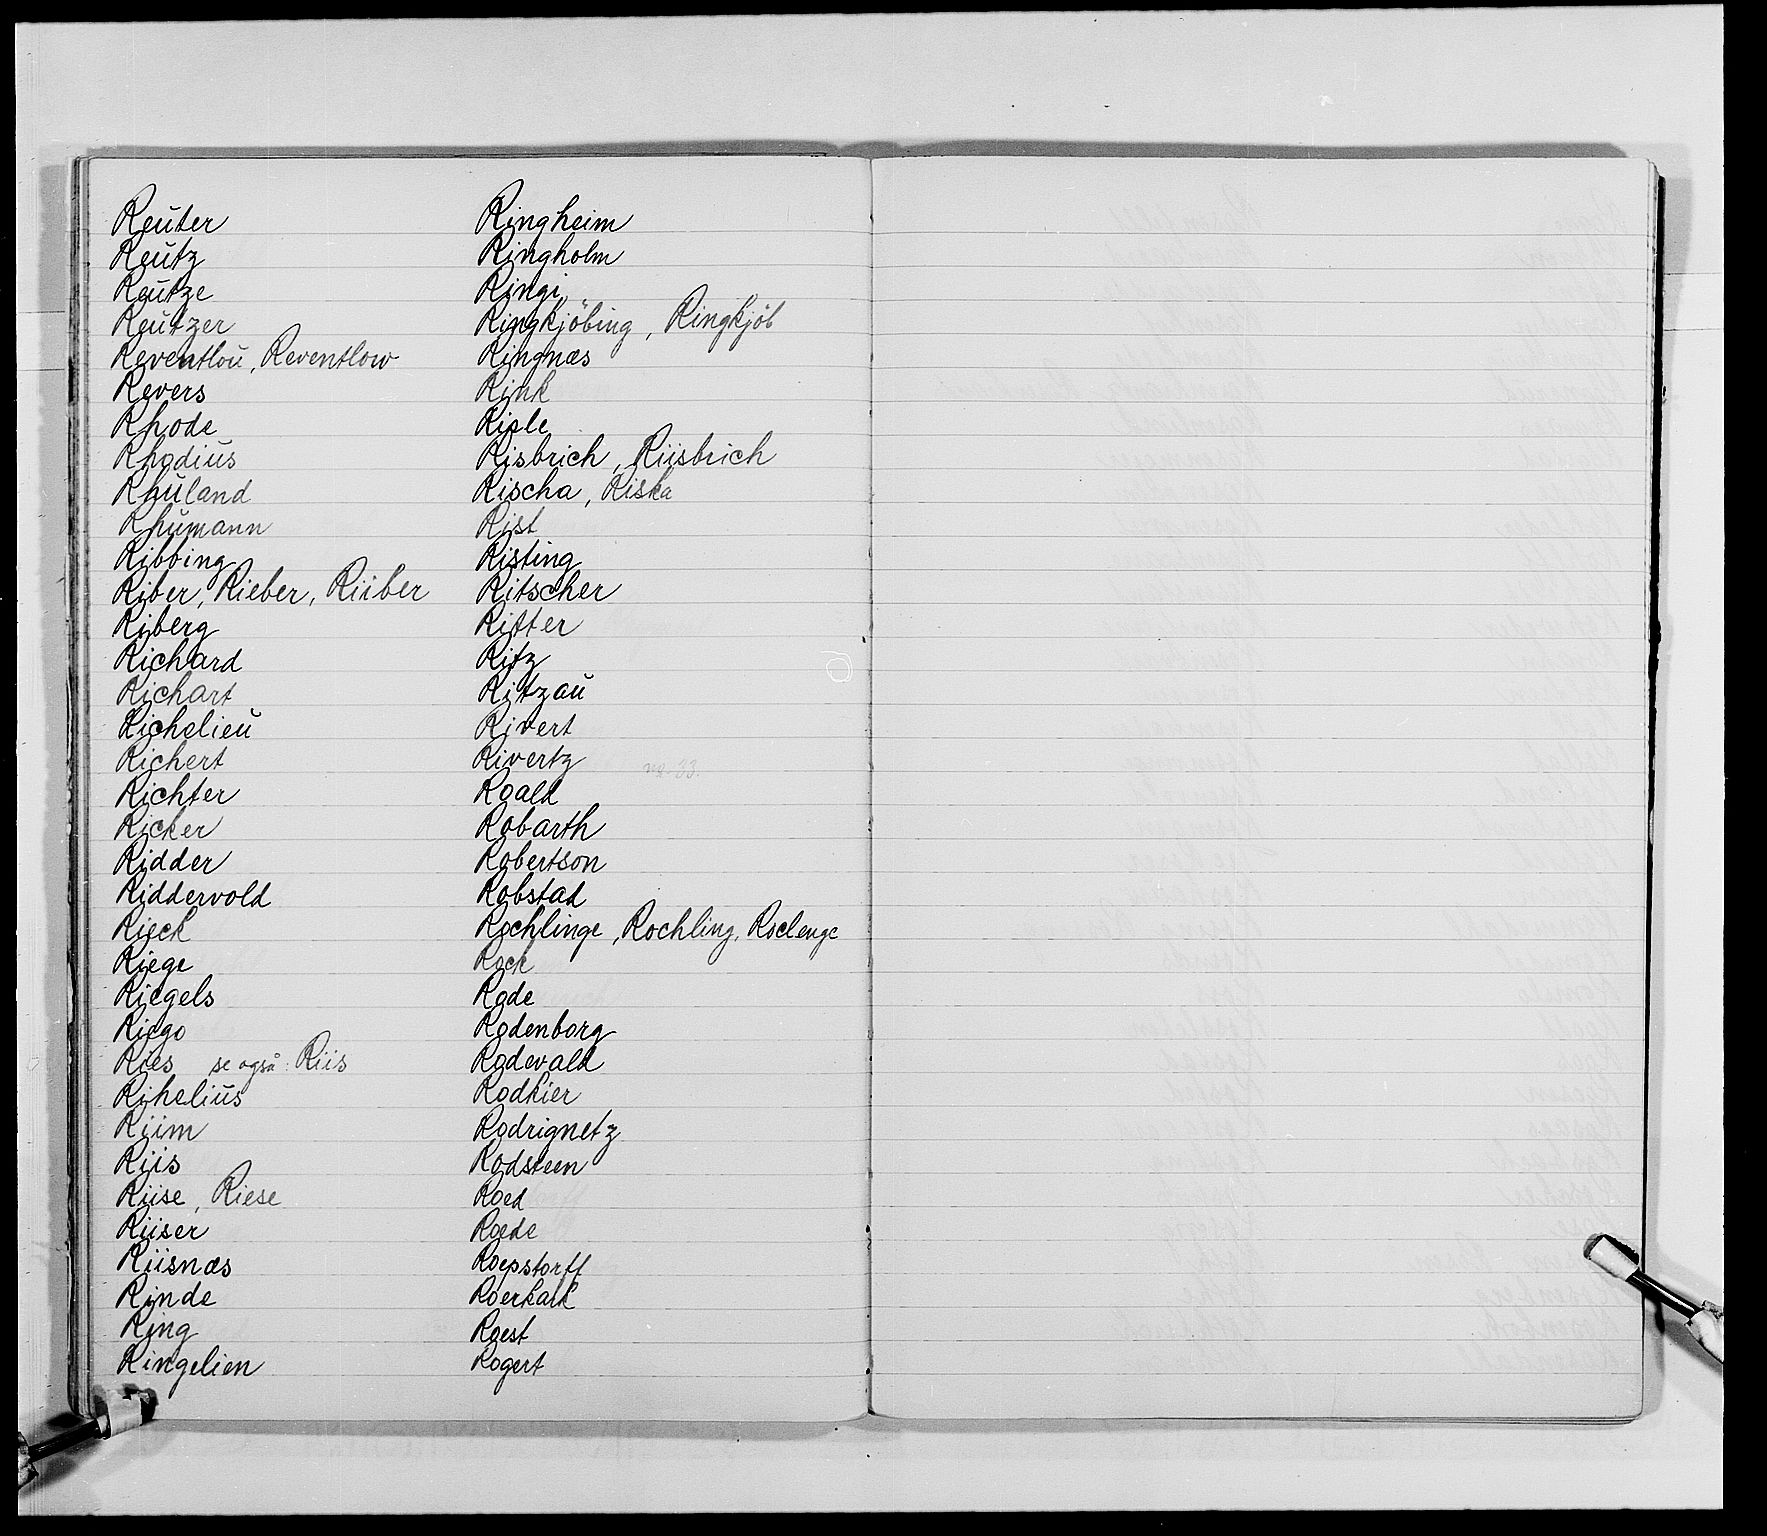 Reuter
Reutz
Reutze
Reutzer
Reventlou, Reventlow
Revers
Rhode
Rhodius
Rhuland
Rhumann
Ribbing
Riber, Rieber, Riiber
Riberg
Richard
Richart
Richelieu
Richert
Richter
Ricker
Ridder
Riddervold
Rieck
Riege
Riegels
Riego
Ries se også: Riis
Rihelius
Riim
Riis
Riise, Riese
Riiser
Riisnæs
Rinde
Ring
Ringelien
Ringheim
Ringholm
Ringi
Ringkjöbing, Ringkjöb
Ringnæs
Rink
Risle
Risbrich, Riisbrich
Rischa, Riska
Rist
Risting
Ritscher
Ritter
Ritz
Ritzau
Rivert
Rivertz
Roald
Robarth
Robertson
Robstad
Rochlinge, Rochling, Roclenge
Rock
Rode
Rodenborg
Rodevald
Rodkier
Rodrignetz
Rodsteen
Roed
Roede
Roepstorff
Roerkark
Roest
Rogert